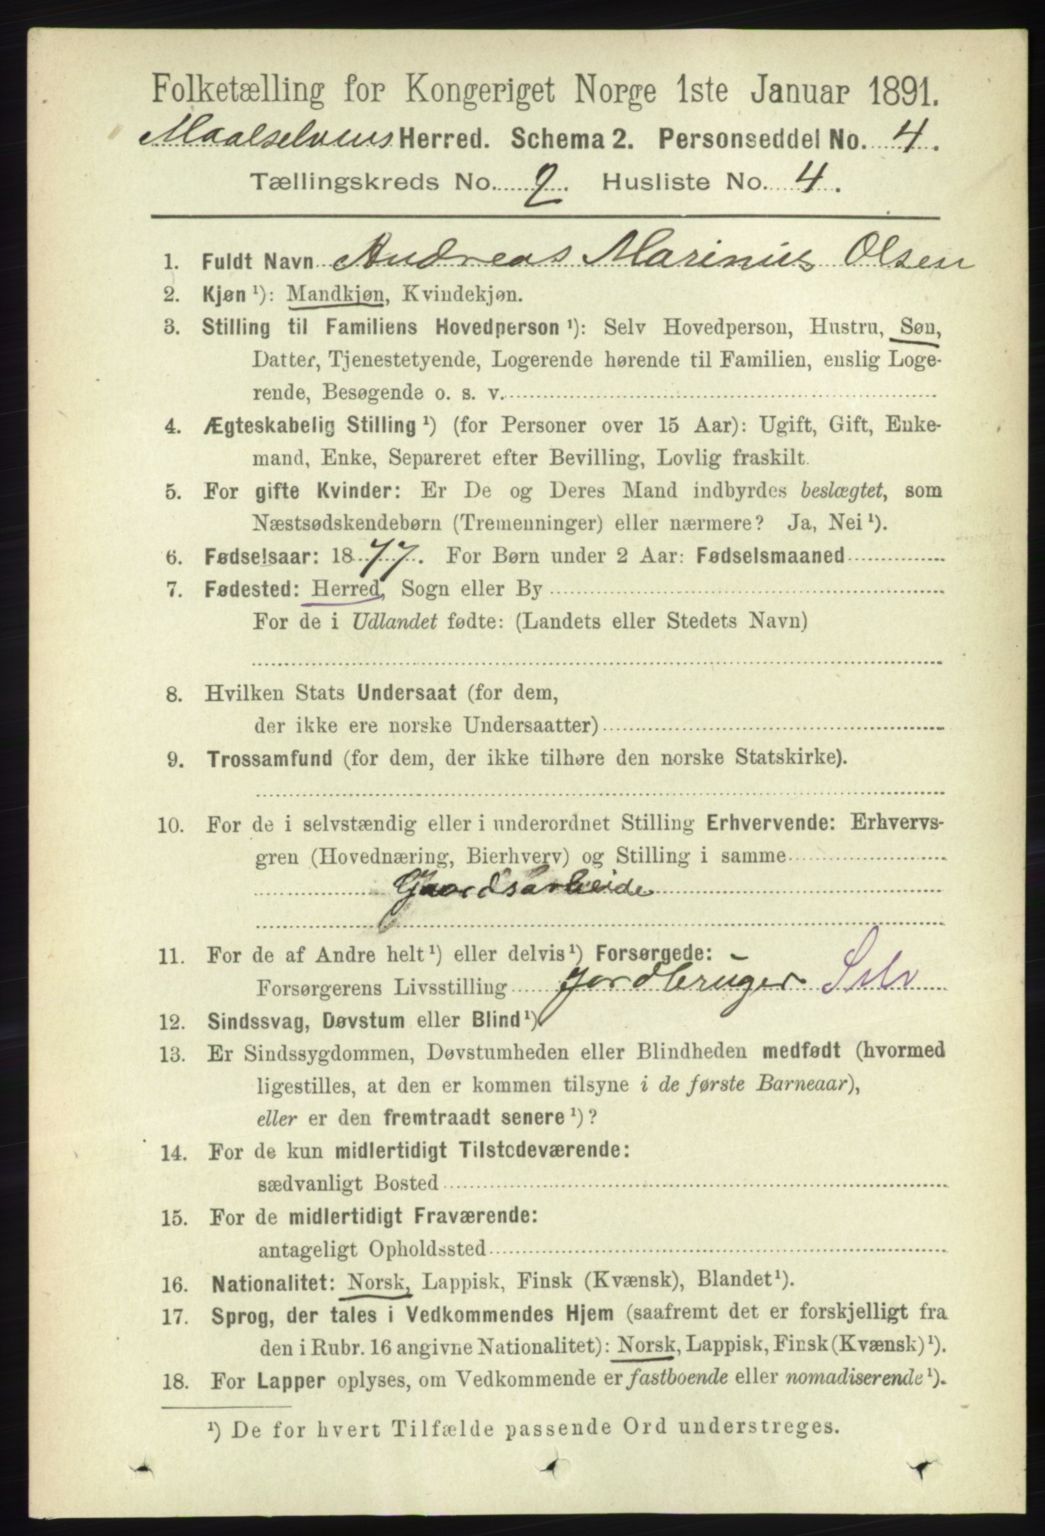 Folketælling for Kongeriget Norge 1ste Januar 1891.
Maalselvens Herred. Schema 2. Personseddel No. 4.
Tællingskreds No. 2. Husliste No. 4.
1. Fuldt Navn Andreas Marinius Olsen
2. Kjøn ¹): Mandkjøn, Kvindekjøn.
3. Stilling til Familiens Hovedperson ¹): Selv Hovedperson, Hustru, Søn,
Datter, Tjenestetyende, Logerende hørende til Familien, enslig Loge-
rende, Besøgende o. s. v.
4. Ægteskabelig Stilling ¹) (for Personer over 15 Aar): Ugift, Gift, Enke-
mand, Enke, Separeret efter Bevilling, Lovlig fraskilt.
5. For gifte Kvinder: Er De og Deres Mand indbyrdes beslægtet, som
Næstsødskendebørn (Tremenninger) eller nærmere? Ja, Nei ¹).
6. Fødselsaar: 1877. For Børn under 2 Aar: Fødselsmaaned
7. Fødested: Herred, Sogn eller By
For de i Udlandet fødte: (Landets eller Stedets Navn)
8. Hvilken Stats Undersaat (for dem,
der ikke ere norske Undersaatter)
9. Trossamfund (for dem, der ikke tilhøre den norske Statskirke).
10. For de i selvstændig eller i underordnet Stilling Erhvervende: Erhvervs-
gren (Hovednæring, Bierhverv) og Stilling i samme
Gaardsarbeide
11. For de af Andre helt ¹) eller delvis ¹) Forsørgede:
Forsørgerens Livsstilling Jordbruger Selv
12. Sindssvag, Døvstum eller Blind ¹)
13. Er Sindssygdommen, Døvstumheden eller Blindheden medfødt (hvormed
ligestilles, at den er kommen tilsyne i de første Barneaar),
eller er den fremtraadt senere ¹)?
14. For de kun midlertidigt Tilstedeværende:
sædvanligt Bosted
15. For de midlertidigt Fraværende:
antageligt Opholdssted
16. Nationalitet: Norsk, Lappisk, Finsk (Kvænsk), Blandet ¹).
17. Sprog, der tales i Vedkommendes Hjem (saafremt det er forskjelligt fra
den i Rubr. 16 angivne Nationalitet): Norsk, Lappisk, Finsk (Kvænsk) ¹).
18. For Lapper oplyses, om Vedkommende er fastboende eller nomadiserende ¹).
¹) De for hvert Tilfælde passende Ord understreges.